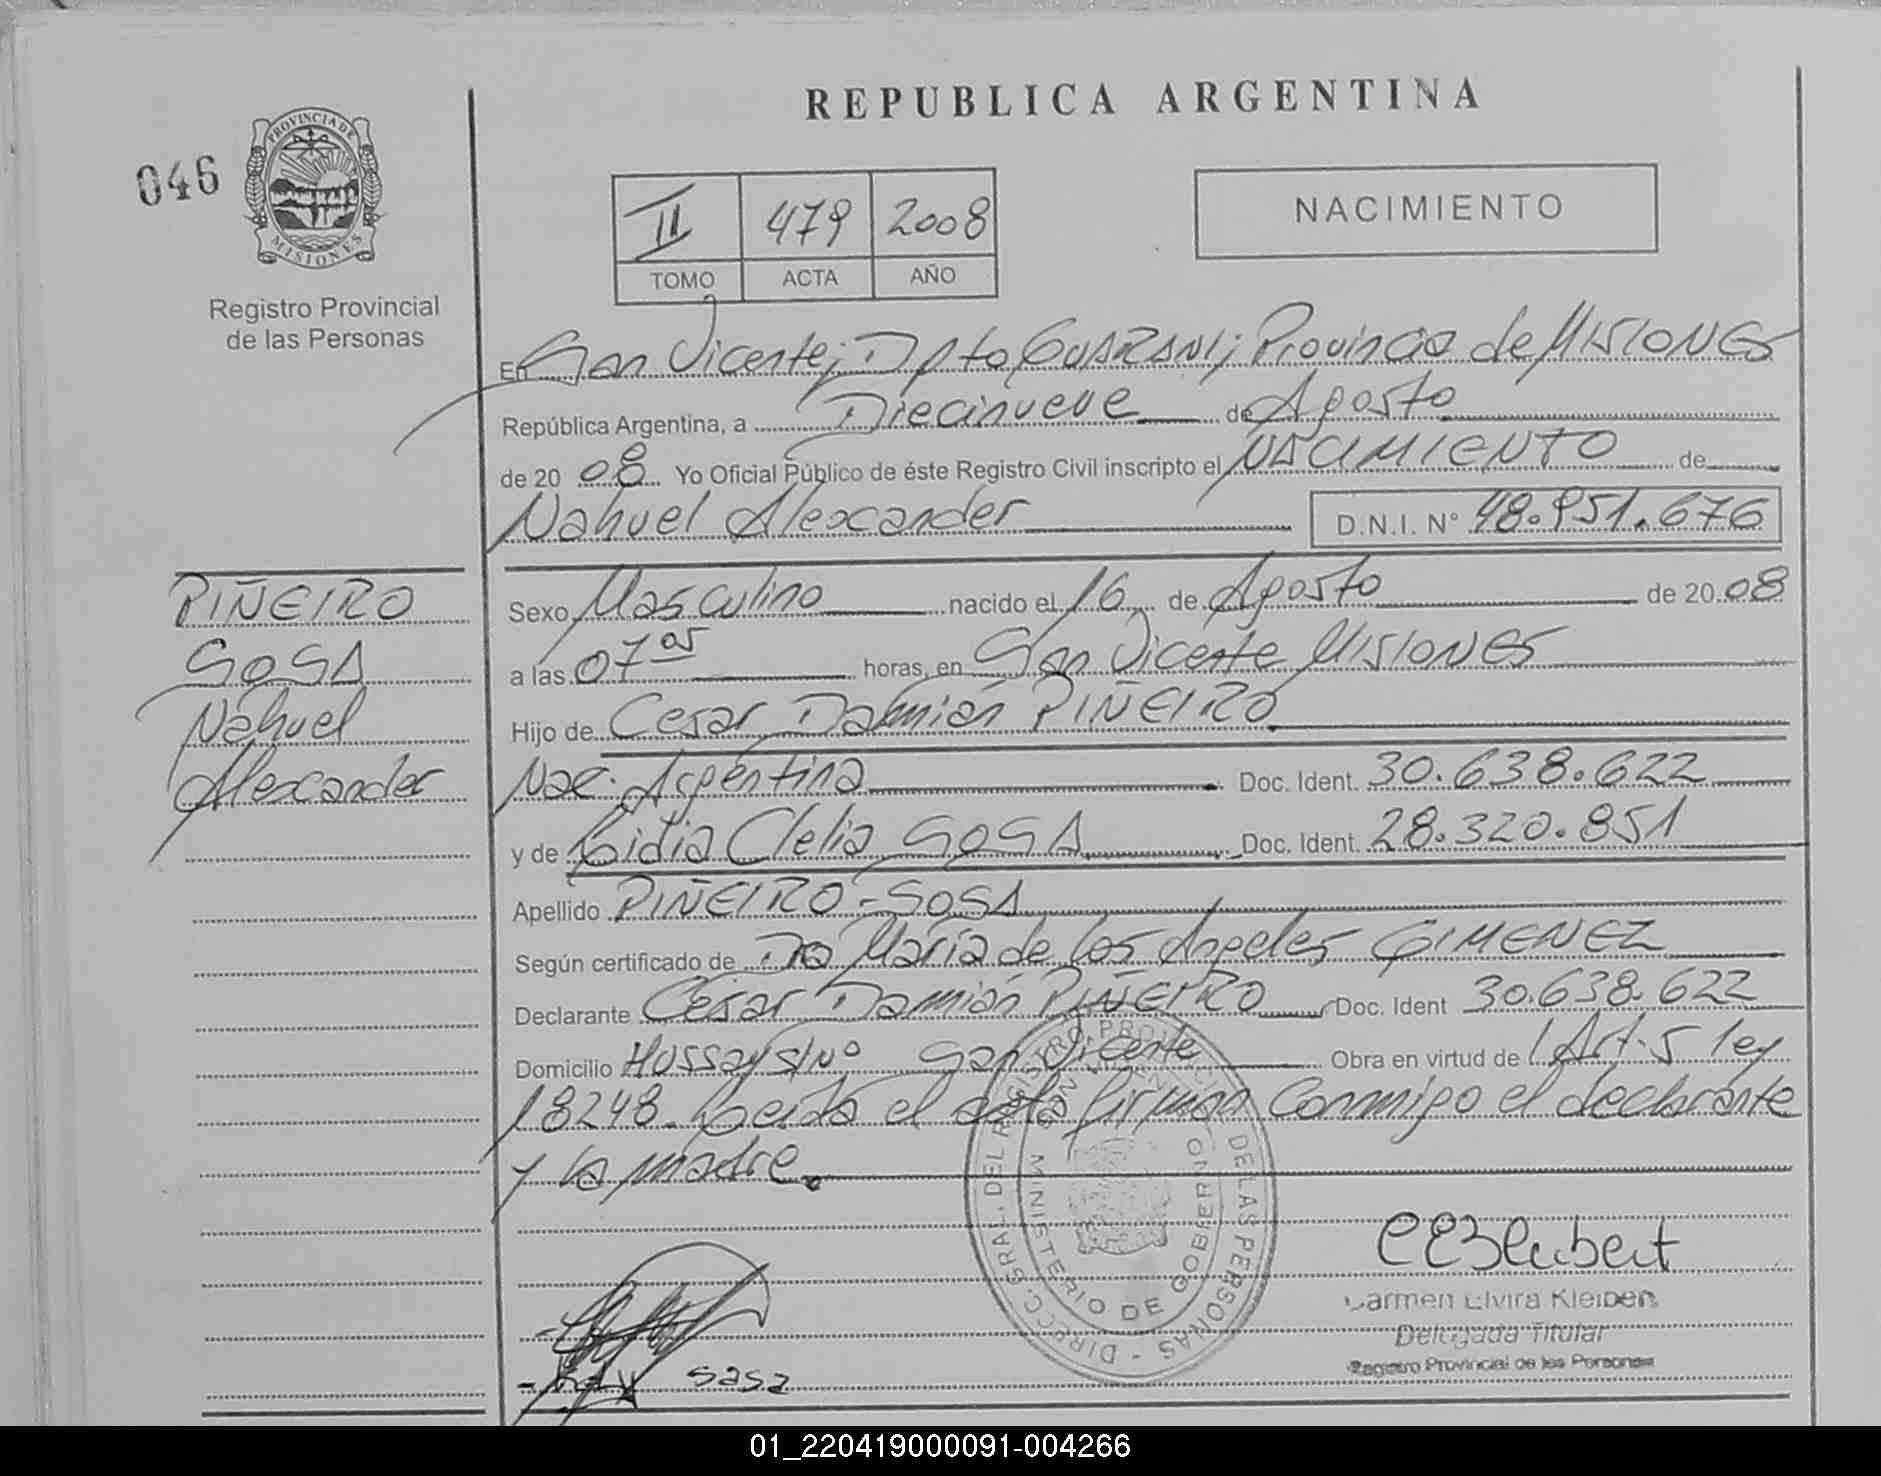 REPUBLICA ARGENTINA
046
PROVINCIA DE
MISIONES
Registro Provincial
de las Personas
II 479 2008
TOMO ACTA AÑO
NACIMIENTO
En San Vicente; Dpto GUARANI; Provincia de MISIONES
República Argentina, a Diecinueve de Agosto
de 20 08 Yo Oficial Público de éste Registro Civil inscripto el NACIMIENTO de
Nahuel Alexander D.N.I. N° 48.951.676
PIÑEIRO
SOSA
Nahuel
Alexander
Sexo Masculino nacido el 16 de Agosto de 20 08
a las 07 05 horas, en San Vicente MISIONES
Hijo de Cesar Damián PIÑEIRO
Nac. Argentina Doc. Ident. 30.638.622
y de Lidia Clelia SOSA Doc. Ident. 28.320.851
Apellido PIÑEIRO - SOSA
Según certificado de Dra María de los Angeles GIMENEZ
Declarante César Damián PIÑEIRO Doc. Ident 30.638.622
Domicilio Hussay s/Nº San Vicente Obra en virtud de Art. 5 ley
18248. Leida el acta firman conmigo el declarante
y la madre.
DIRECC. GRAL. DEL REGISTRO PROVINCIAL DE LAS PERSONAS -
MINISTERIO DE GOBIERNO
Carmen Elvira Kleiben
Delegada Titular
Registro Provincial de las Personas
sasa
01_220419000091-004266